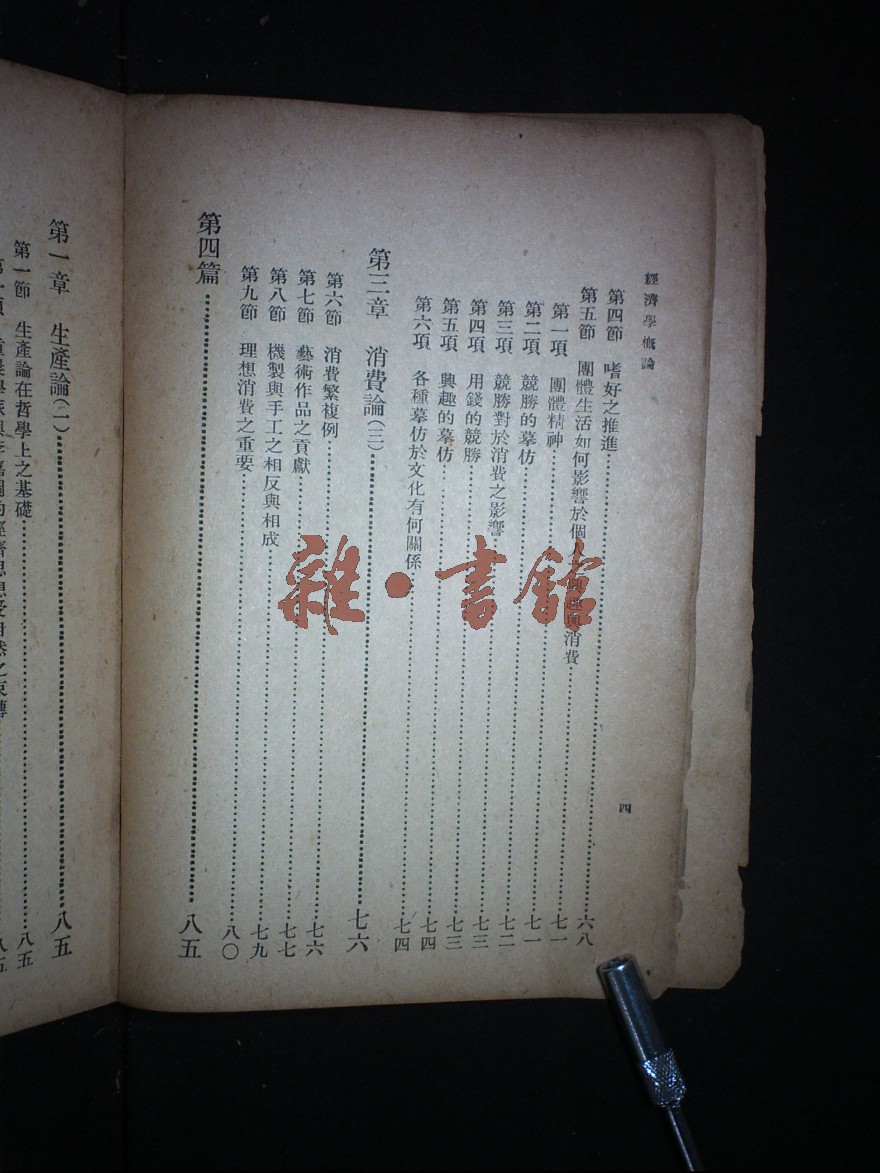 經濟學概論
第四節 嗜好之推進……六八
第五節 團體生活如何影響於個人興趣消費……七一
第一項 團體精神……七一
第二項 競勝的摹仿……七二
第三項 競勝對於消費之影響……七三
第四項 用錢的競勝……七三
第五項 興趣的摹仿……七四
第六項 各種摹仿於文化有何關係……七四
第三章 消費論(三)……七六
第六節 消費繁複例……七六
第七節 藝術作品之貢獻……七七
第八節 機製與手工之相反與相成……七九
第九節 理想消費之重要……八〇
第四篇……八五
四
第一章 生產論(一)……八五
第一節 生產論在哲學上之基礎……八五
雜·書館